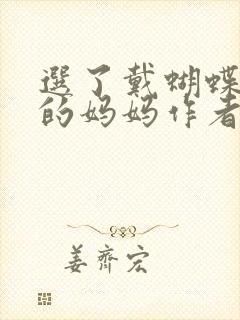 選了戴蝴蝶
的妈妈作者
姜齊宏